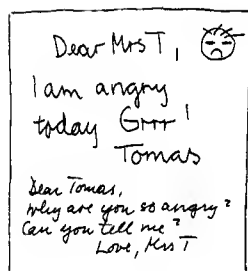 Dear Mrs T,
I am angry
today Grrr!
Tomas
Dear Tomas,
Why are you so angry?
Can you tell me?
Love, Mrs T